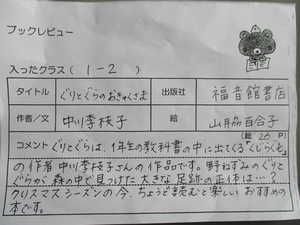 ブックレビュー
入ったクラス( 1-2 )
タイトル ぐりとぐらのおきゃくさま 出版社 福音館書店
作者/文 中川李枝子 絵 山脇百合子
(総 28 P)
コメント ぐりとぐらは、1年生の教科書の中に出てくる「くじらぐも」
の作者 中川李枝子さんの作品です。野ねずみのぐりと
ぐらが 森の中で見つけた 大きな 足跡の正体は…?
クリスマスシーズンの今、ちょうど読むと楽しい おすすめの
本です。